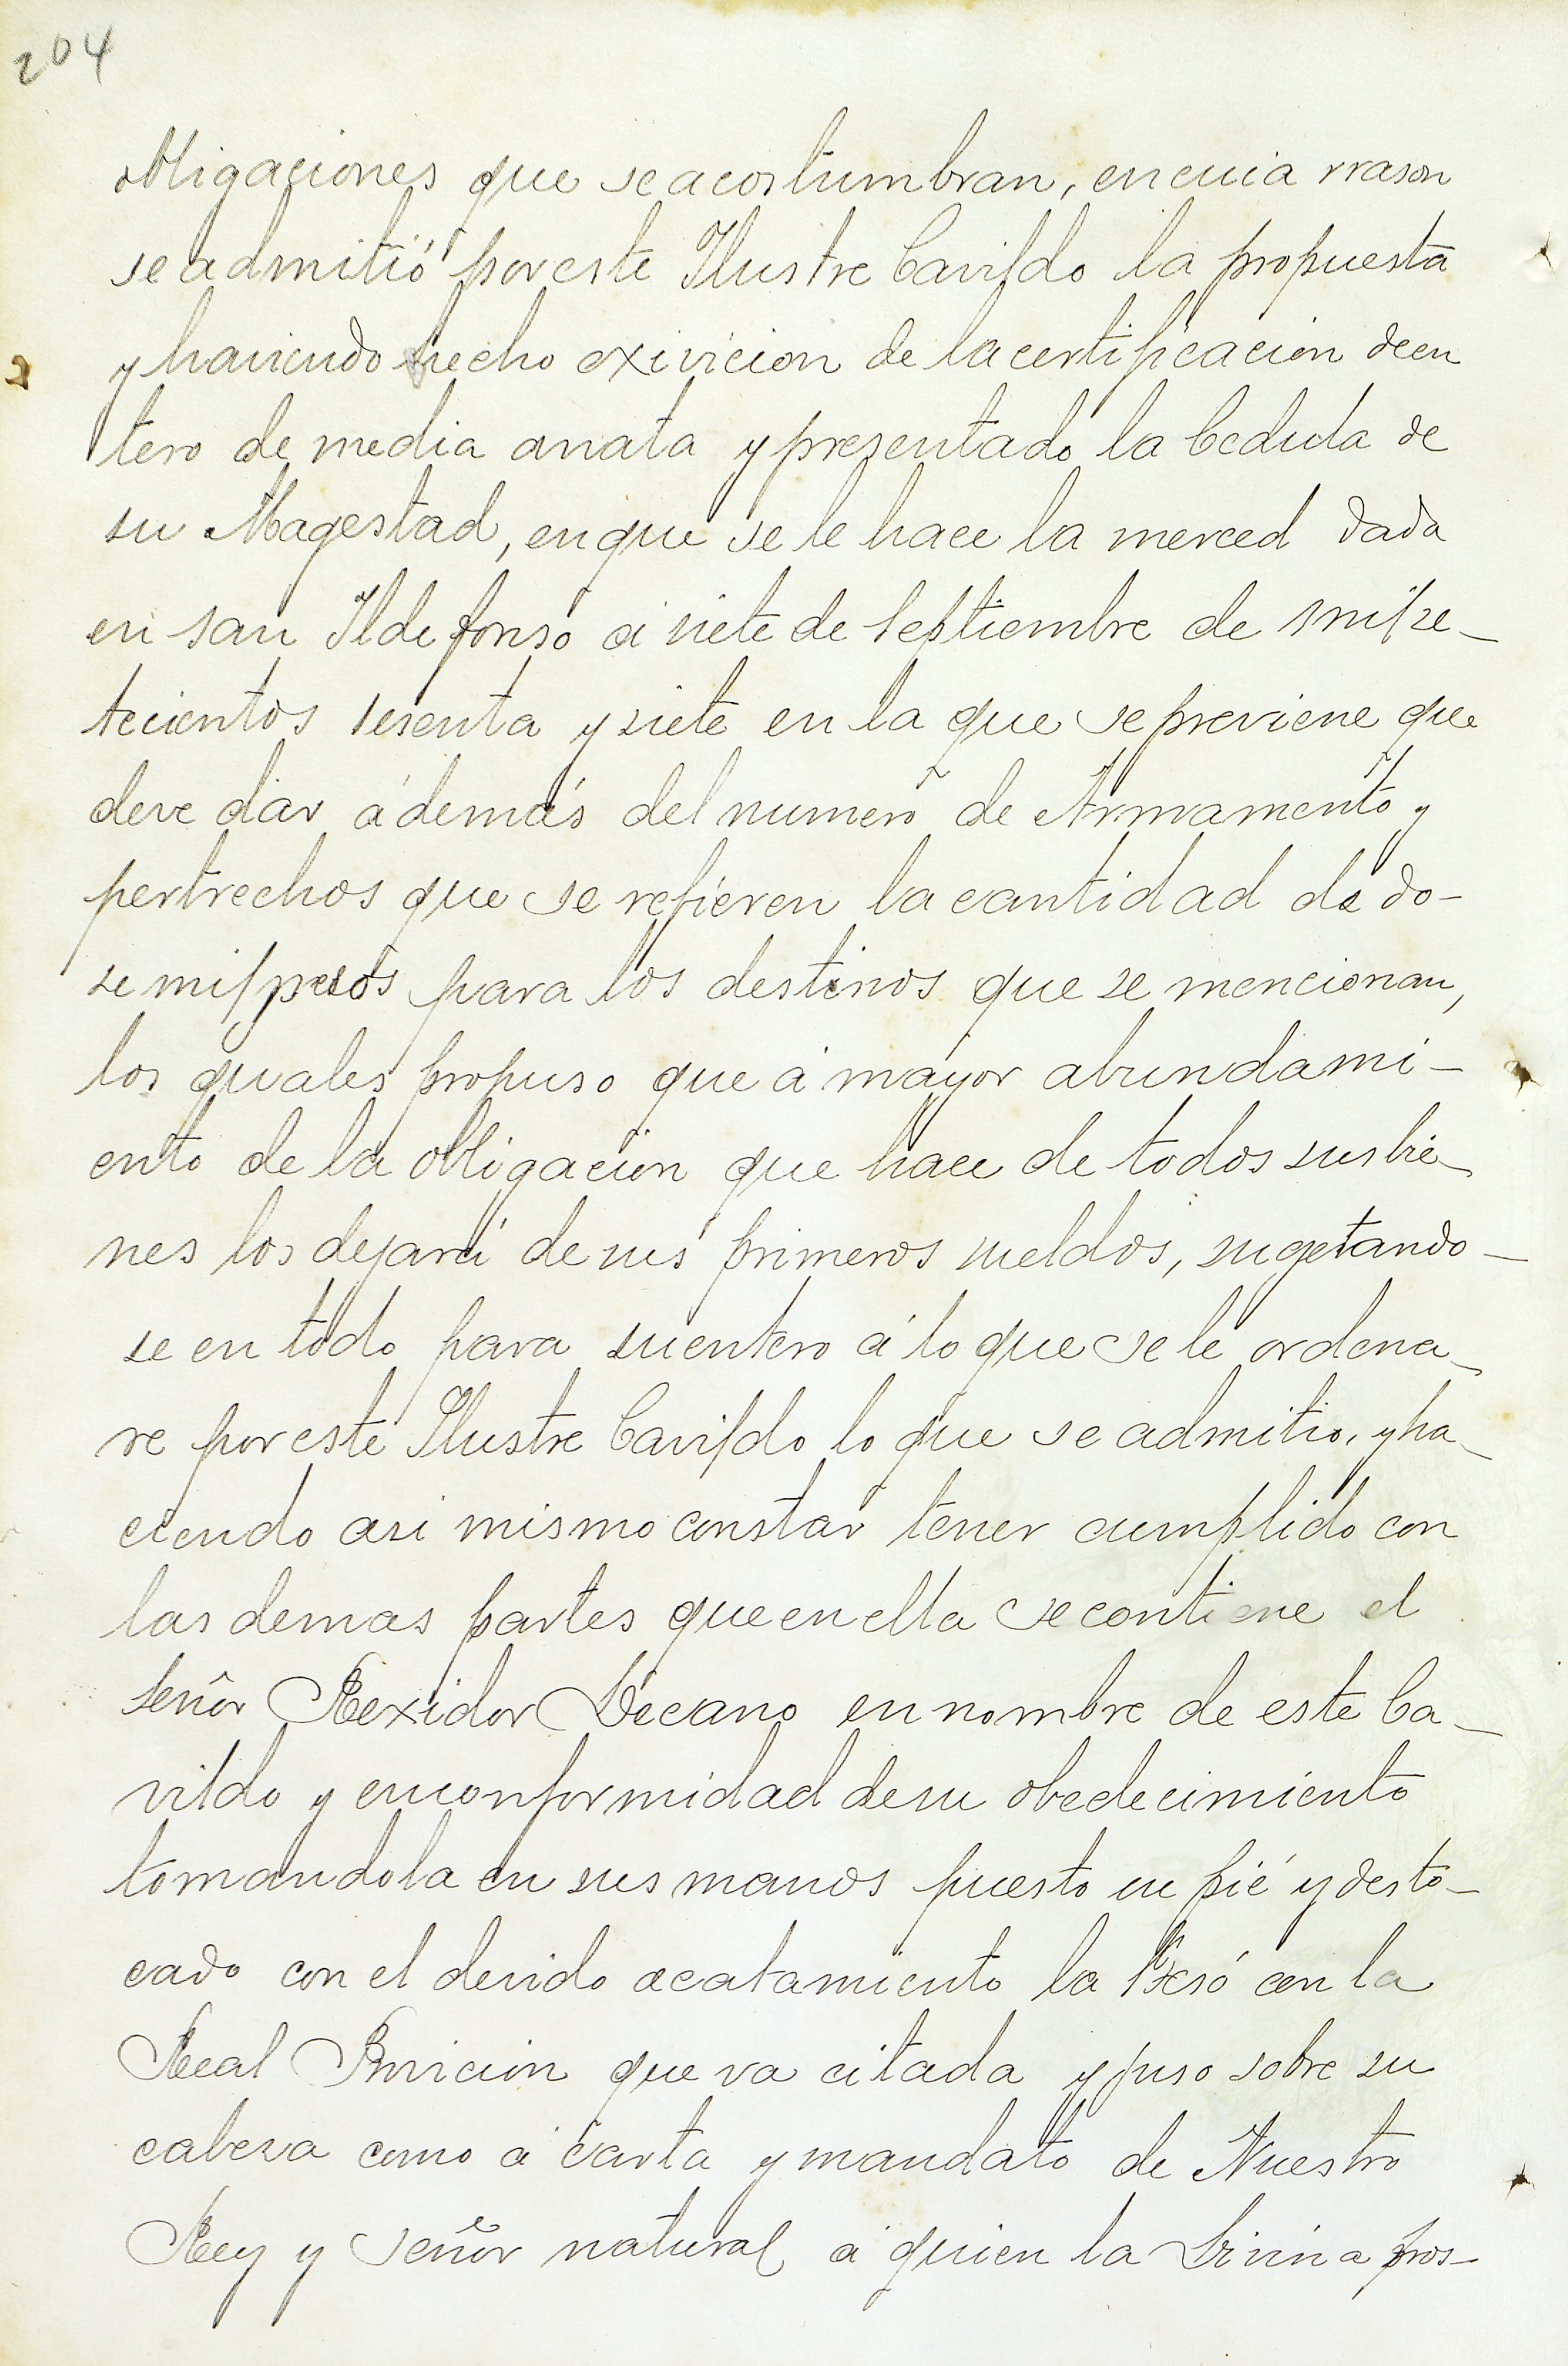 204
obligaciones que se acostumbran, en cuia rrason
se admitió por este Ilustre Cavildo la propuesta
y haviendo hecho exivicion de la certificacion de en
tero de media anata y presentado la Cedula de
su Magestad, en que se le hace la merced dada
en San Ildefonso á siete de Septiembre de mil se-
tecientos sesenta y siete en la que se previene que
deve dar además del numero de Armamento y
pertrechos que se refieren la cantidad de do-
se mil pesos para los destinos que se mencionan,
los quales propuso que á mayor abundami-
ento de la obligacion que hace de todos sus bie-
nes los dejará de sus primeros sueldos, sugetando-
se en todo para su entero á lo que se le ordena-
re por este Ilustre Cavildo lo que se admitio, y ha-
ciendo asi mismo constar tener cumplido con
las demas partes que en ella se contiene el
señor Rexidor Decano en nombre de este Ca-
vildo y en conformidad de su obedecimiento
tomandola en sus manos puesto en pié y desto-
cado con el devido acatamiento la Besó con la
Real Provicion que va citada y puso sobre su
cabesa como á carta y mandato de Nuestro
Rey y señor natural á quien la Divina pros-